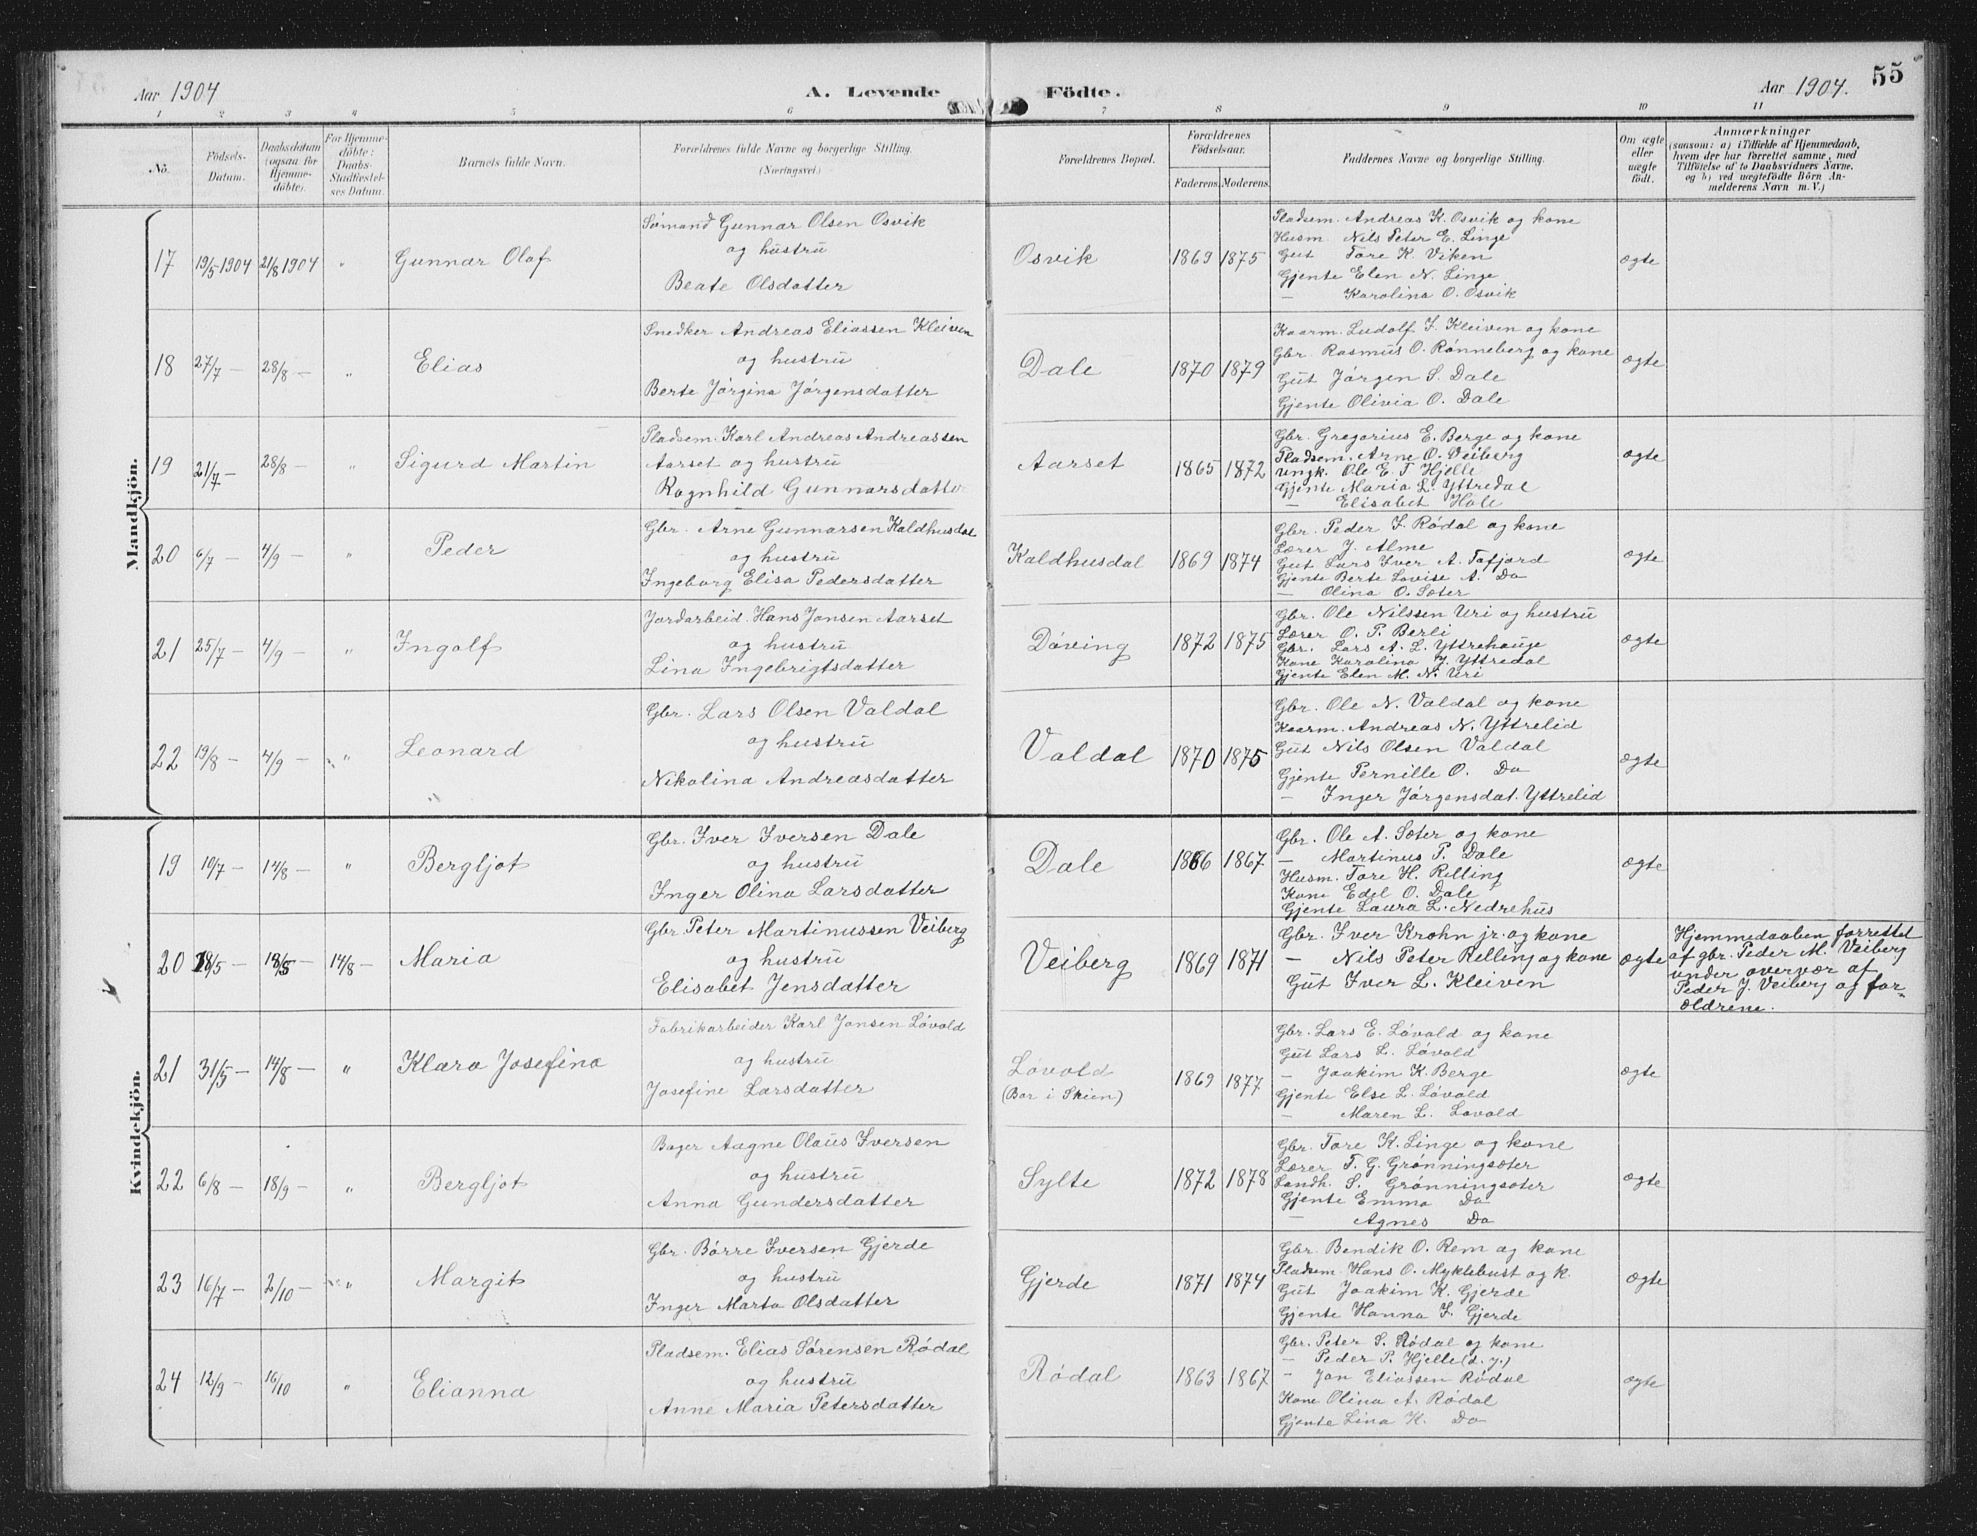 Aar 1904
A. Levende Födte.
Aar 1904.
55
1 2 3 4 5 6 7 8 9 10 11
No.
Födsels-
Datum.
Daabsdatum
(ogsaa for
Hjemme-
döbte).
For Hjemme-
döbte:
Daabs-
Stadfæstel-
ses Datum.
Barnets fulde Navn.
Forældrenes fulde Navne og borgerlige Stilling.
(Næringsvei)
Forældrenes Bopæl.
Forældrenes
Födselsaar.
Faderens. Moderens.
Faddernes Navne og borgerlige Stilling.
Om ægte
eller
uægte
födt.
Anmærkninger
(saasom: a) i Tilfælde af Hjemmedaab,
hvem der har forrettet samme, med
Tilföielse af to Daabsvidners Navne.
og b) ved uægtefödte Börn An-
melderens Navn m. V.)
Mandkjön.
17 19/5 1904 21/8 1904 " Gunnar Olaf
Sømand Gunnar Olsen Osvik
og hustru
Beate Olsdatter
Osvik 1869 1875
Pladsem. Andreas K. Osvik og kone
Husm. Nils Peter E. Linge
Gut Tore K. Viken
Gjente Elen N. Linge
— Karolina O. Osvik
ægte
18 27/7 — 28/8 — " Elias
Snedker Andreas Eliassen Kleiven
og hustru
Berte Jørgina Jørgensdatter
Dale 1870 1879
Kaarm. Ludolf I. Kleiven og kone
Gbr. Rasmus O. Rønneberg og kone
Gut Jørgen S. Dale
Gjente Olivia O. Dale
ægte
19 21/7 — 28/8 — " Sigurd Martin
Pladsem. Karl Andreas Andreassen
Aarset og hustru
Ragnhild Gunnarsdatter
Aarset 1865 1872
Gbr. Gregorius E. Berge og kone
Pladsem. Arne O. Veiberg
Ungk. Ole E. T. Hjelle
Gjente Maria L. Yttredal
— Elisabet Hole
ægte
20 6/7 — 4/9 — " Peder
Gbr. Arne Gunnarsen Kaldhusdal
og hustru
Ingeborg Elisa Pedersdatter
Kaldhusdal 1869 1874
Gbr. Peder I. Rødal og kone
Lærer J. Alme
Gut Lars Iver A. Tafjord
Gjente Berte Lovise A. Do
— Olina O. Sæter
ægte
21 25/7 — 4/9 — " Ingolf
Jordarbeid. Hans Jonsen Aarset
og hustru
Lina Ingebrigtsdatter
Døving 1872 1875
Gbr. Ole Nilssen Uri og hustru
Lærer O. P. Berli
Gbr. Lars A. L. Yttrehauge
Kone Karolina J. Yttredal
Gjente Elen M. N. Uri
ægte
22 19/8 — 4/9 — " Leonard
Gbr. Lars Olsen Valdal
og hustru
Nikolina Andreasdatter
Valdal 1870 1875
Gbr. Ole N. Valdal og kone
Kaarm. Andreas N. Yttrelid
Gut Nils Olsen Valdal
Gjente Pernille O. Do
— Inger Jørgensdat. Yttrelid
ægte
Kvindekjön.
19 19/7 — 14/8 — " Bergljot
Gbr. Iver Iversen Dale
og hustru
Inger Olina Larsdatter
Dale 1866 1867
Gbr. Ole A. Sæter og kone
— Martinus P. Dale
Husm. Tore H. Relling
Kone Edel O. Dale
Gjente Laura L. Nedrehus
ægte
20 18/5 — 18/5 — 14/8 — Maria
Gbr Peter Martinussen Veiberg
og hustru
Elisabet Jensdatter
Veiberg 1869 1871
Gbr. Iver Krohn jr. og kone
— Nils Peter Relling og kone
Gut Iver L. Kleiven
ægte
Hjemmedaaben forrettet
af gbr. Peder M. Veiberg
under overvær af
Peder J. Veiberg og for-
ældrene.
21 31/5 — 14/8 — " Klara Josefina
Fabrikarbeider Karl Jonsen Løvold
og hustru
Josefine Larsdatter
Løvold
(Bor i Skien)
1869 1877
Gbr. Lars E. Løvold og kone
Gut Lars L. Løvold
— Joakim K. Berge
Gjente Else L. Løvold
— Maren L. Løvold
ægte
22 6/8 — 18/9 — " Bergljot
Bager Aagne Olaus Iversen
og hustru
Anna Gundersdatter
Sylte 1872 1878
Gbr. Tore K. Linge og kone
Lærer T. G. Grønningsæter
Landh. S. Grønningsæter
Gjente Emma Do
— Agnes Do
ægte
23 16/7 — 2/10 — " Margit
Gbr. Børre Iversen Gjerde
og hustru
Inger Marta Olsdatter
Gjerde 1871 1874
Gbr. Bendik O. Rem og kone
Pladsem. Hans O. Myklebust og k.
Gut Joakim K. Gjerde
Gjente Hanna I. Gjerde
ægte
24 12/9 — 16/10 " Elianna
Pladsem. Elias Sørensen Rødal
og hustru
Anne Maria Petersdatter
Rødal 1863 1867
Gbr. Peter S. Rødal og kone
— Peder P. Hjelle (d. y.)
— Jon Eliassen Rødal
Kone Olina A. Rødal
Gjente Lina K. Do
ægte